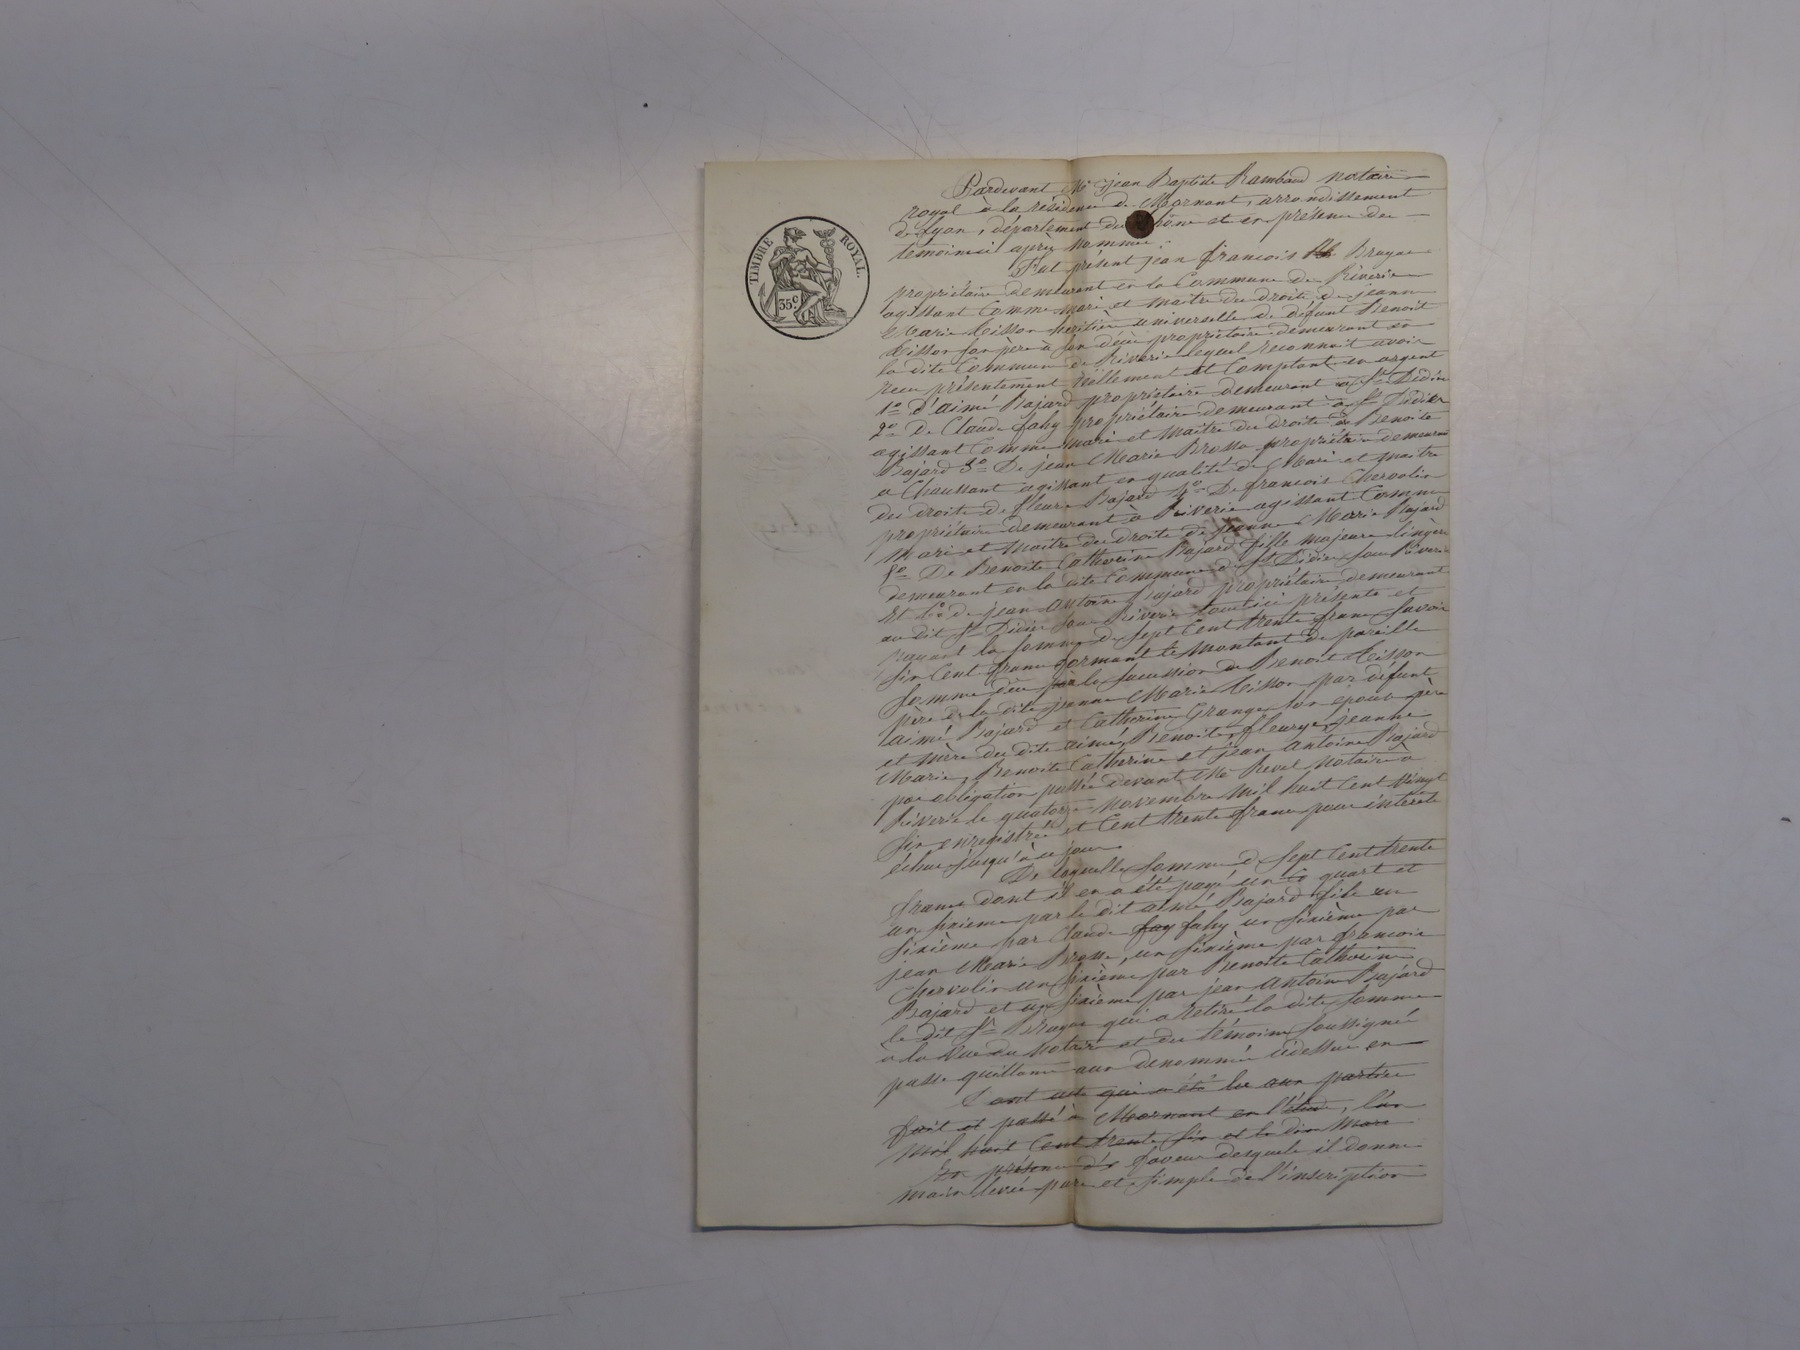 TIMBRE ROYAL.
35c
Pardevant Me jean Baptiste Rambaud notaire
royal à la résidence de Mornant, arrondissement
de Lyon, département du Rhône et en présence des
temoins ci après nommés
Fut présent jean françois Bruyas
propriétaire demeurant en la Commune de Riverie
agissant Comme mari et maitre des droits de jeanne
Marie Tisson heritière universelle de défunt Benoit
Tisson son père à son décès propriétaire demeurant en
la dite Commune de Riverie lequel reconnait avoir
reçu présentement réellement et Comptant en argent
1o d'aimé Bajard propriétaire demeurant à St Didier
2o De Claude fahy propriétaire demeurant à St Didier
agissant Comme mari et maitre des droits de Benoite
Bajard 3o De jean Marie Brosse propriétaire demeurant
a Chaussant agissant en qualité de Mari et maitre
des droits de fleurie Bajard 4o De françois Chervolin
propriétaire demeurant à Riverie agissant Comme
Mari et maitre des droits de jeanne Marie Bajard
5o De Benoite Catherine Bajard fille majeure lingère
demeurant en la dite Commune de St Didier sous Riverie
et 6o de jean Antoine Bajard propriétaire demeurant
au dit St Didier sous Riverie tous ici présents et
payant la somme de sept Cent trente francs savoir
six Cent francs formant le montant de pareille
somme due par la succession de Benoit Tisson
père de la dite jeanne Marie Tisson par défunt
aimé Bajard et Catherine Grange son épouse père
et mère des dits aimé, Benoite, fleurye, jeanne
Marie, Benoite Catherine et jean antoine Bajard
par obligation passée devant Me Revel notaire à
Riverie le quatorze novembre mil huit Cent vingt
six enregistrée et Cent trente francs pour intérêts
échus jusqu'à ce jour
De laquelle somme de sept Cent trente
francs dont il en a été payé un quart et
un sixieme par le dit aimé Bajard fils un
sixième par Claude fay fahy un sixième par
jean Marie Brosse, un sixième par francois
Chervolin un sixième par Benoite Catherine
Bajard et un sixième par jean antoine Bajard
le dit Sr Bruyas qui a retiré la dite somme
à la vue du notaire et des témoins soussignés
passe quittance aux denommés cidessus en
Dont acte qui a été lu aux parties
fait et passé à Mornant en l'étude, l'an
mil huit Cent trente six et le dix mars
En présence de faveur desquels il donne
main levée pure et simple de l'inscription